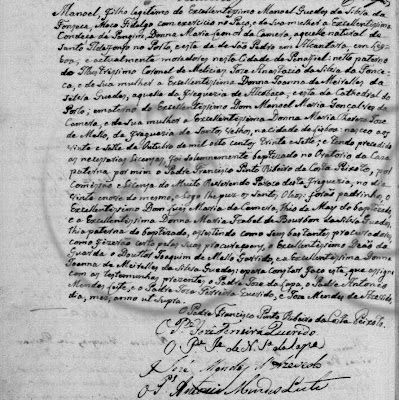 Manoel, filho legitimo do Excellentissimo Manoel Guedes da Silva da
Fonseca, Moço Fidalgo com exercicio no Paço, e de sua mulher a Excellentissima
Condeça de Pangim, Donna Maria da Camera, aquelle natural de
Santo Ildefonso no Porto, e esta da de São Pedro em Alcantara, em Lis-
boa, e actualmente moradores nesta Cidade de Penafiel: neto paterno
do Illustrissimo Coronel de Milicias, Jose Anastacio da Silva da Fonse-
ca, e de sua mulher a Excellentissima Donna Joanna de Meirelles da
Silva Guedes, aquelle da Freguezia de e esta da Cathedral do
Porto, e materno do Excellentissimo Dom Manoel Maria Gonçalves da
Camera, e de sua mulher a Excellentissima Donna Maria Theresa José
de Mello, da Freguezia de Santos Velhos, na Cidade de Lisboa: nasceo aos
vinte e sette de Outubro de mil oito centos trinta e sette; e tendo precedido
as necessarias licenças, foi solemnemente baptizado no Oratorio da Caza
paterna por mim o Padre Francisco Pinto Ribeiro da Costa Peixoto, por
Comissão e licença do Muito Reverendo Paroco desta Freguezia, no dia
trinta do mesmo, e logo lhe puz os Santos Oleos: forão padrinhos, o
Excellentissimo Dom José Maria da Camera, thio da May do baptizado,
e a Excellentissima Donna Maria Izabel de Bourbon da Silva Guedes,
thia paterna do baptizado, assistindo como seus bastantes procuradores,
como fizerão certo pelas suas procuraçoens, o Excellentissimo Deão da
Guarda o Doutor Joaquim de Mello e a Excellentissima Donna
Joanna de Meirelles da Silva Guedes; e para constar faço este, que assigno
com as testemunhas prezentes, o Padre Jose da Lapa, o Padre Antonio
Mendes Leite, e o Padre Jose Ferreira Querido, e Jose Mendes de Azevedo
dia, mes, anno ut supra.
O Padre Francisco Pinto Ribeiro da Costa Peixoto.
O Pe. José Ferreira Querido.
O Pe. Je. de N. Sa. da Lapa
José Mendes d'Azevedo
O Pe. Antonio Mendes Leite